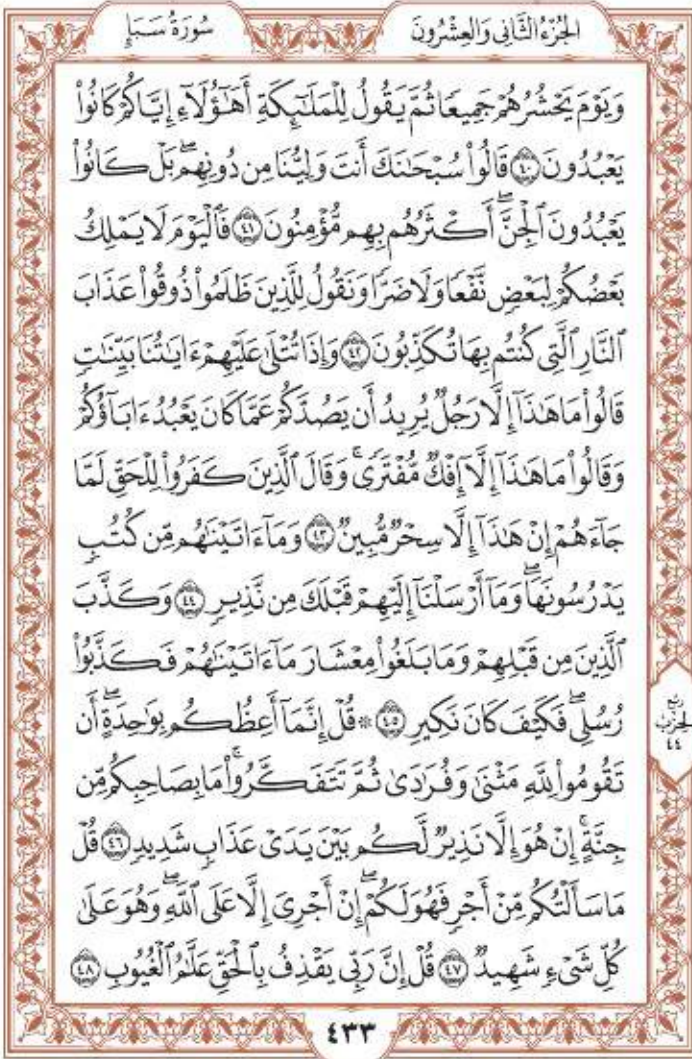 الجُزْءُ الثَّانِي وَالعِشْرُونَ
سُورَةُ سَبَإٍ
وَيَوْمَ يَحْشُرُهُمْ جَمِيعًا ثُمَّ يَقُولُ لِلْمَلَٰٓئِكَةِ أَهَٰٓؤُلَآءِ إِيَّاكُمْ كَانُوا۟
يَعْبُدُونَ ٤٠ قَالُوا۟ سُبْحَٰنَكَ أَنتَ وَلِيُّنَا مِن دُونِهِمۖ بَلْ كَانُوا۟
يَعْبُدُونَ ٱلْجِنَّۖ أَكْثَرُهُم بِهِم مُّؤْمِنُونَ ٤١ فَٱلْيَوْمَ لَا يَمْلِكُ
بَعْضُكُمْ لِبَعْضٍ نَّفْعًا وَلَا ضَرًّا وَنَقُولُ لِلَّذِينَ ظَلَمُوا۟ ذُوقُوا۟ عَذَابَ
ٱلنَّارِ ٱلَّتِى كُنتُم بِهَا تُكَذِّبُونَ ٤٢ وَإِذَا تُتْلَىٰ عَلَيْهِمْ ءَايَٰتُنَا بَيِّنَٰتٍ
قَالُوا۟ مَا هَٰذَآ إِلَّا رَجُلٌ يُرِيدُ أَن يَصُدَّكُمْ عَمَّا كَانَ يَعْبُدُ ءَابَآؤُكُمْ
وَقَالُوا۟ مَا هَٰذَآ إِلَّآ إِفْكٌ مُّفْتَرًىۚ وَقَالَ ٱلَّذِينَ كَفَرُوا۟ لِلْحَقِّ لَمَّا
جَآءَهُمْ إِنْ هَٰذَآ إِلَّا سِحْرٌ مُّبِينٌ ٤٣ وَمَآ ءَاتَيْنَٰهُم مِّن كُتُبٍ
يَدْرُسُونَهَاۖ وَمَآ أَرْسَلْنَآ إِلَيْهِمْ قَبْلَكَ مِن نَّذِيرٍ ٤٤ وَكَذَّبَ
ٱلَّذِينَ مِن قَبْلِهِمْ وَمَا بَلَغُوا۟ مِعْشَارَ مَآ ءَاتَيْنَٰهُمْ فَكَذَّبُوا۟
رُسُلِىۖ فَكَيْفَ كَانَ نَكِيرِ ٤٥ ۞ قُلْ إِنَّمَآ أَعِظُكُم بِوَٰحِدَةٍۖ أَن
تَقُومُوا۟ لِلَّهِ مَثْنَىٰ وَفُرَٰدَىٰ ثُمَّ تَتَفَكَّرُوا۟ۚ مَا بِصَاحِبِكُم مِّن
جِنَّةٍۚ إِنْ هُوَ إِلَّا نَذِيرٌ لَّكُم بَيْنَ يَدَىْ عَذَابٍ شَدِيدٍ ٤٦ قُلْ
مَا سَأَلْتُكُم مِّنْ أَجْرٍ فَهُوَ لَكُمْۖ إِنْ أَجْرِىَ إِلَّا عَلَى ٱللَّهِۖ وَهُوَ عَلَىٰ
كُلِّ شَىْءٍ شَهِيدٌ ٤٧ قُلْ إِنَّ رَبِّى يَقْذِفُ بِٱلْحَقِّ عَلَّٰمُ ٱلْغُيُوبِ ٤٨
رُبْع
الحِزْب
٤٤
٤٣٣